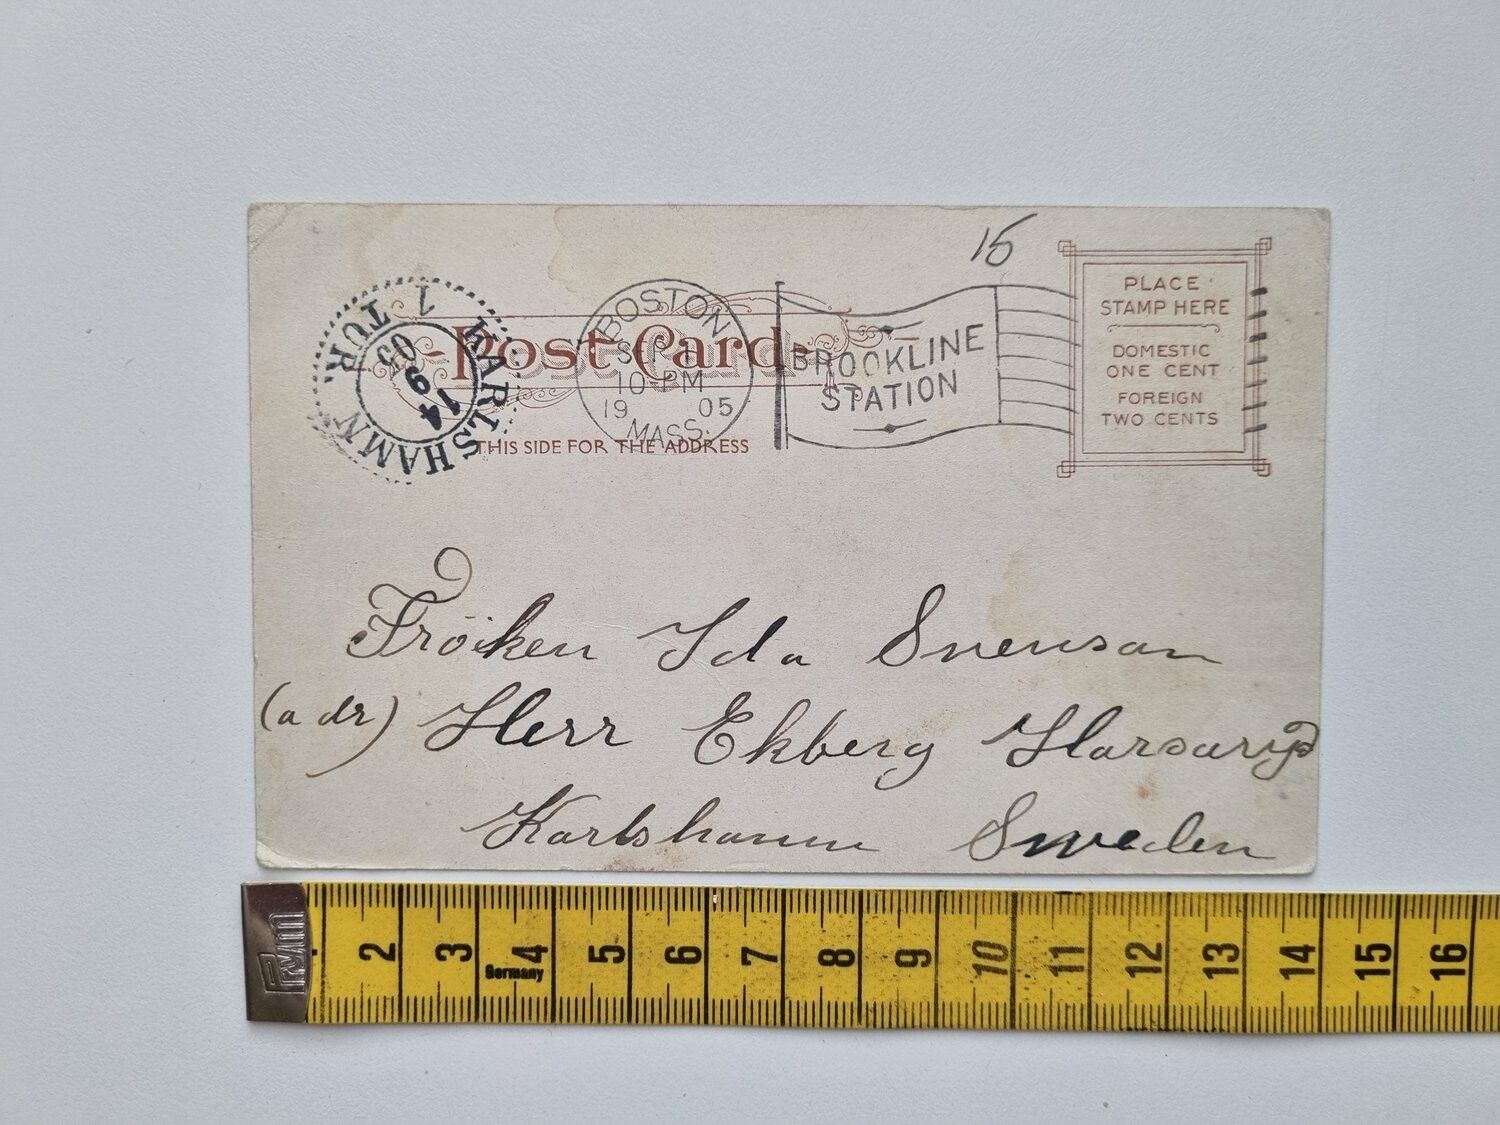 15
PLACE
STAMP HERE
DOMESTIC
ONE CENT
FOREIGN
TWO CENTS
KARLSHAMN
7 TUR
14
9
05
Post Card
THIS SIDE FOR THE ADDRESS
BOSTON
SEP 1
10-PM
19 05
MASS.
BROOKLINE
STATION
Fröiken Ida Svenson
(adr) Herr Ekberg
Karlshamn Sweden
Prym
2 3 4 5 6 7 8 9 10 11 12 13 14 15 16
Germany